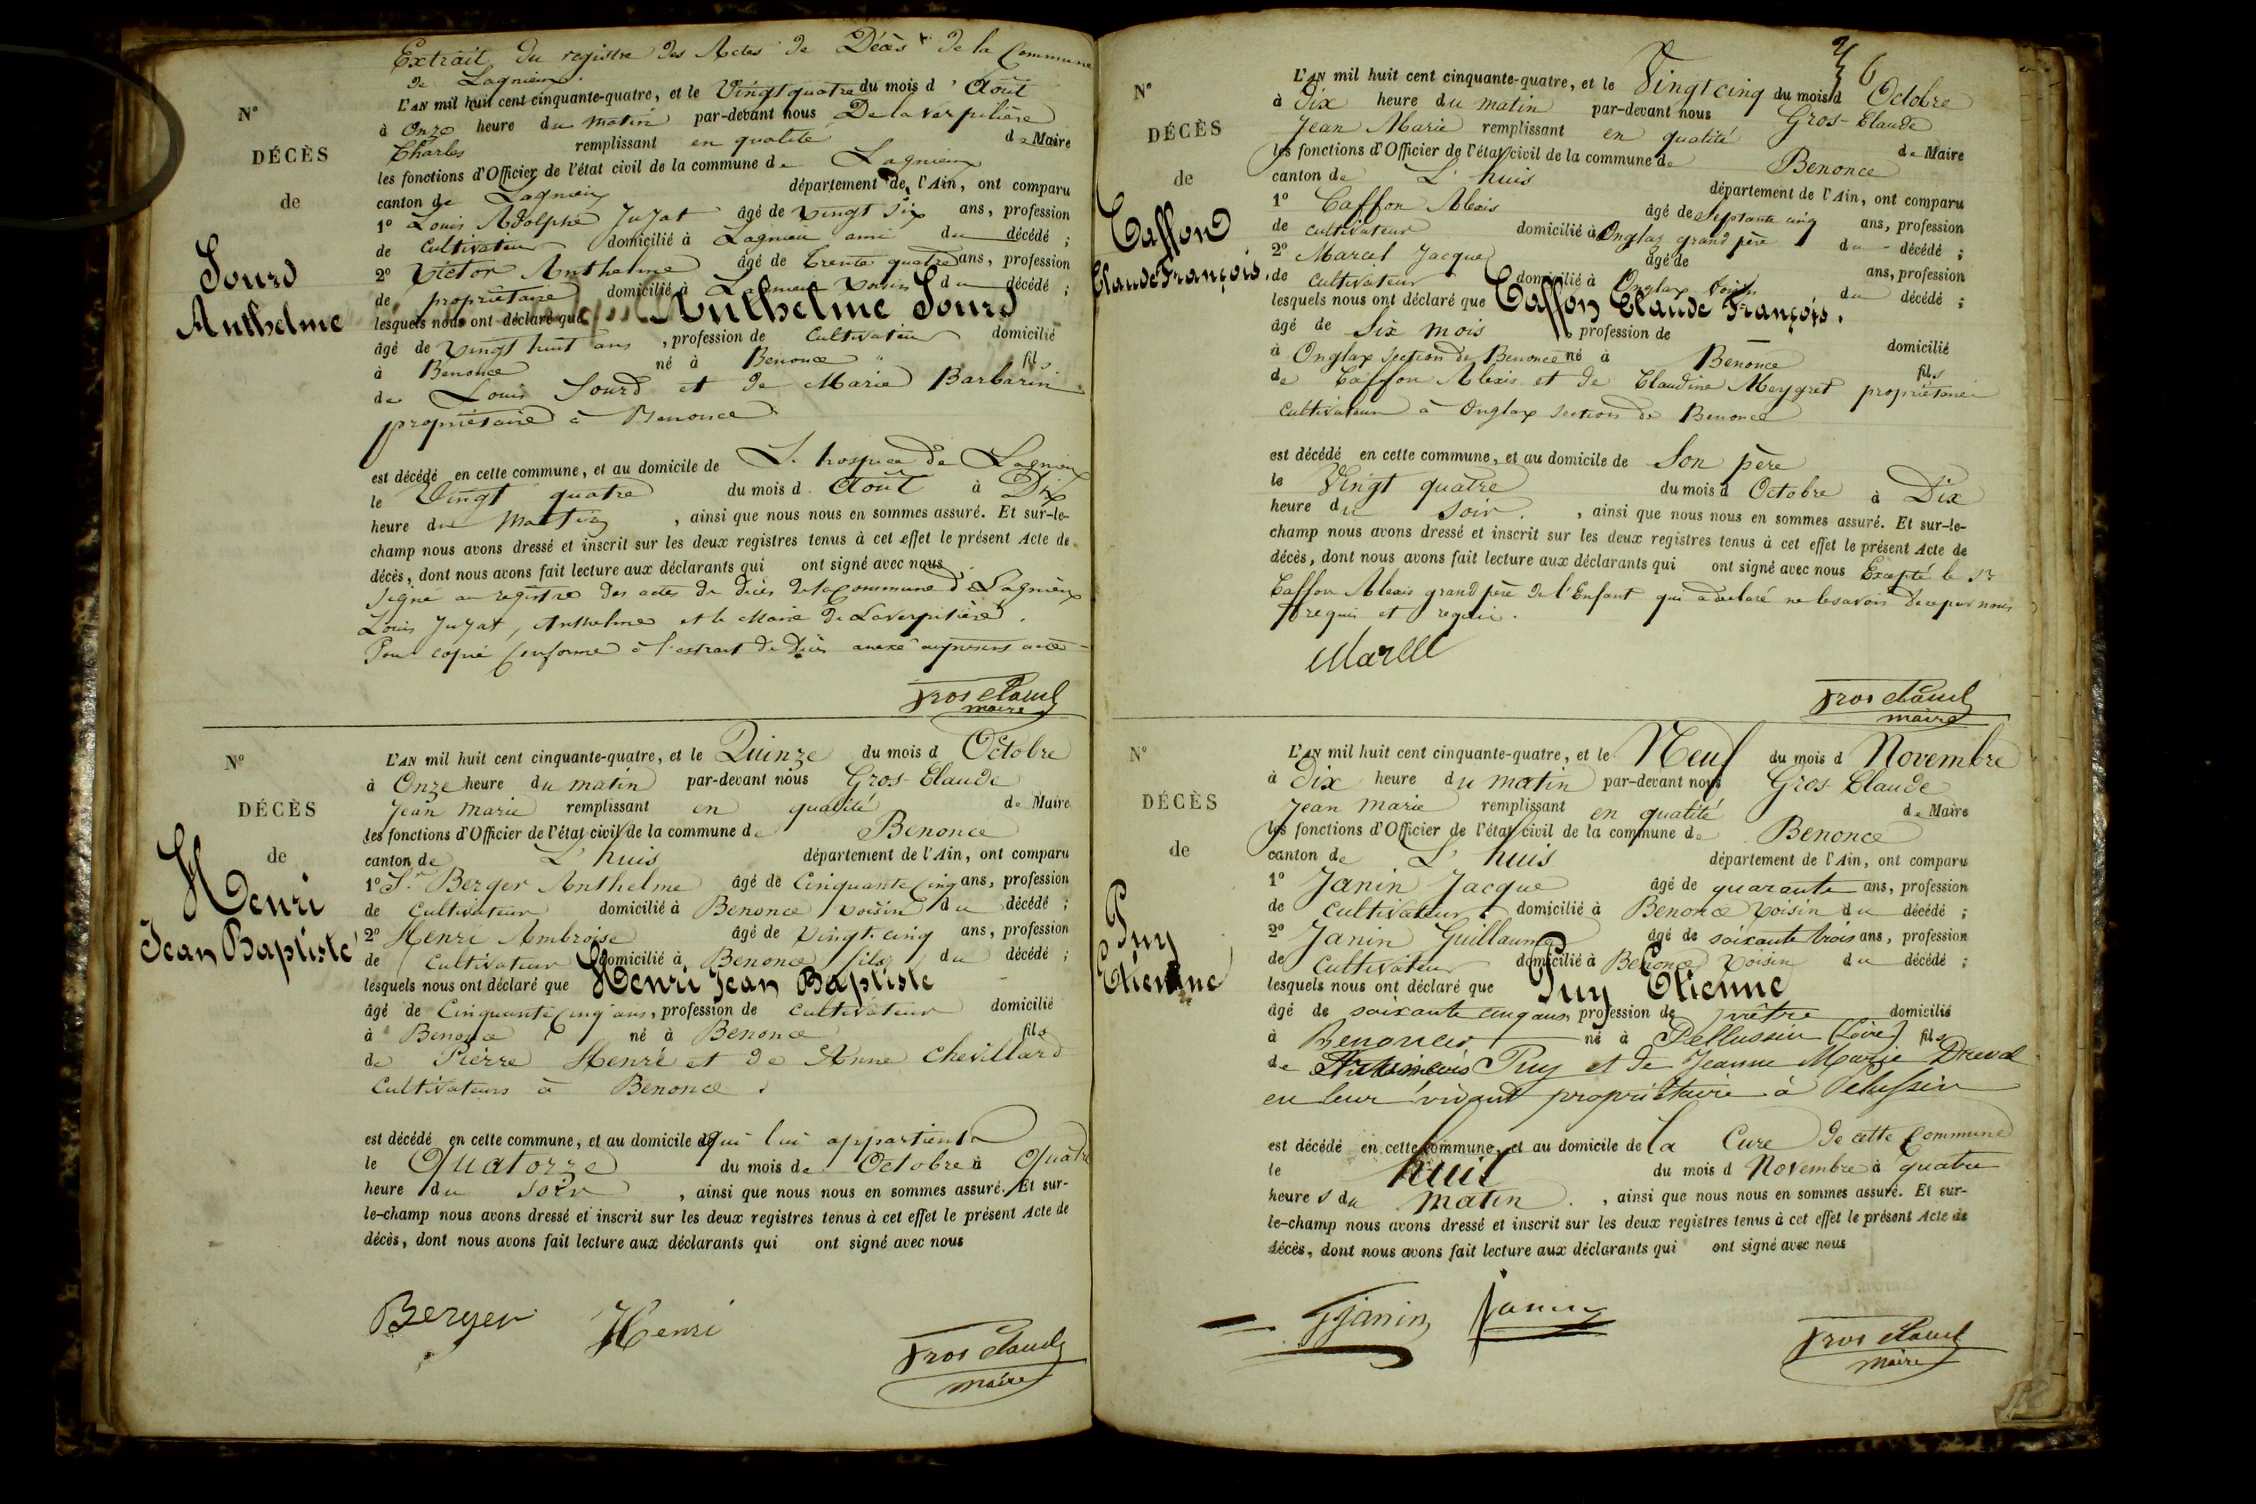 Extrait du registre des Actes de Décès de la Commune
de Lagnieux.
N°
DÉCÈS
de
Sourd
Anthelme
L'AN mil huit cent cinquante-quatre, et le Vingt quatre du mois d' Août
à Onze heure du matin par-devant nous De la verpilière
Charles remplissant en qualité de Maire
les fonctions d'Officier de l'état civil de la commune de Lagnieux
canton de Lagnieux département de l'Ain, ont comparu
1° Louis Adolphe Jujat âgé de vingt six ans, profession
de Cultivateur domicilié à Lagnieu ami du décédé ;
2° Victor Anthelme âgé de trente quatre ans, profession
de propriétaire domicilié à Lagnieu voisin du décédé ;
lesquels nous ont déclaré que Anthelme Sourd
âgé de vingt huit ans, profession de Cultivateur domicilié
à Benonce né à Benonce fils
de Louis Sourd et de Marie Barbarin
propriétaire à Benonce
est décédé en cette commune, et au domicile de L'hospice de Lagnieu
le Vingt quatre du mois d'Août à Dix
heure du Matin, ainsi que nous nous en sommes assuré. Et sur-le-
champ nous avons dressé et inscrit sur les deux registres tenus à cet effet le présent Acte de
décès, dont nous avons fait lecture aux déclarants qui ont signé avec nous
Signé au registre des actes de décès de la commune de Lagnieux
Louis Jujat, Anthelme et le Maire De Laverpilière.
Pour copie Conforme à l'extrait de Décès annexé au présent acte
Gros Claude
maire
N°
DÉCÈS
de
Henri
Jean Baptiste
L'AN mil huit cent cinquante-quatre, et le Quinze du mois d Octobre
à Onze heure du matin par-devant nous Gros-Claude
Jean marie remplissant en qualité de Maire
les fonctions d'Officier de l'état civil de la commune de Benonce
canton de L'huis département de l'Ain, ont comparu
1° Sr Berger Anthelme âgé de Cinquante Cinq ans, profession
de Cultivateur domicilié à Benonce voisin du décédé ;
2° Henri Ambroise âgé de vingt-cinq ans, profession
de Cultivateur domicilié à Benonce fils du décédé ;
lesquels nous ont déclaré que Henri Jean Baptiste
âgé de Cinquante Cinq ans, profession de Cultivateur domicilié
à Benonce né à Benonce fils
de Pierre Henri et de Anne Chevillard
Cultivateurs à Benonce.
est décédé en cette commune, et au domicile de qui lui appartient
le Quatorze du mois de Octobre à Quatre
heure du Soir, ainsi que nous nous en sommes assuré. Et sur-
le-champ nous avons dressé et inscrit sur les deux registres tenus à cet effet le présent Acte de
décès, dont nous avons fait lecture aux déclarants qui ont signé avec nous
Berger Henri
Gros Claude
maire
6
N°
DÉCÈS
de
Caffon
Claude François.
L'AN mil huit cent cinquante-quatre, et le Vingt cinq du mois d Octobre
à Dix heure du matin par-devant nous Gros-Claude
Jean Marie remplissant en qualité de Maire
les fonctions d'Officier de l'état civil de la commune de Benonce
canton de L'huis département de l'Ain, ont comparu
1° Caffon Alexis âgé de Septante cinq ans, profession
de cultivateur domicilié à Onglas grand père du décédé ;
2° Marcel Jacque âgé de ans, profession
de Cultivateur domicilié à Onglax voisin du décédé ;
lesquels nous ont déclaré que Caffon Claude François.
âgé de Six mois profession de domicilié
à Onglax Section de Benonce né à Benonce fils
de Caffon Alexis et de Claudine Meygret propriétaire
Cultivateur à Onglax Section de Benonce
est décédé en cette commune, et au domicile de Son père
le Vingt quatre du mois d Octobre à Dix
heure du Soir., ainsi que nous nous en sommes assuré. Et sur-le-
champ nous avons dressé et inscrit sur les deux registres tenus à cet effet le présent Acte de
décès, dont nous avons fait lecture aux déclarants qui ont signé avec nous Excepté le Sr
Caffon Alexis grand père de l'Enfant qui a déclaré ne le savoir de ce par nous
requis et requis.
Marcel
Gros Claude
maire
N°
DÉCÈS
de
Puy
Etienne
L'AN mil huit cent cinquante-quatre, et le Neuf du mois d Novembre
à Dix heure du matin par-devant nous Gros-Claude
Jean marie remplissant en qualité de Maire
les fonctions d'Officier de l'état civil de la commune de Benonce
canton de L'huis département de l'Ain, ont comparu
1° Janin Jacque âgé de quarante ans, profession
de Cultivateur domicilié à Benonce Voisin du décédé ;
2° Janin Guillaume âgé de soixante trois ans, profession
de Cultivateur domicilié à Benonce Voisin du décédé ;
lesquels nous ont déclaré que Puy Etienne
âgé de soixante cinq ans, profession de prêtre domicilié
à Benonces né à Pellussin (Loire) fils
de Puy et de Jeanne Marie Drevet
en leur vivant propriétaire à Pelussin
est décédé en cette commune, et au domicile de La Cure de cette Commune
le huit du mois d Novembre à quatre
heures du matin., ainsi que nous nous en sommes assuré. Et sur-
le-champ nous avons dressé et inscrit sur les deux registres tenus à cet effet le présent Acte de
décès, dont nous avons fait lecture aux déclarants qui ont signé avec nous
Janin Janin
Gros Claude
maire